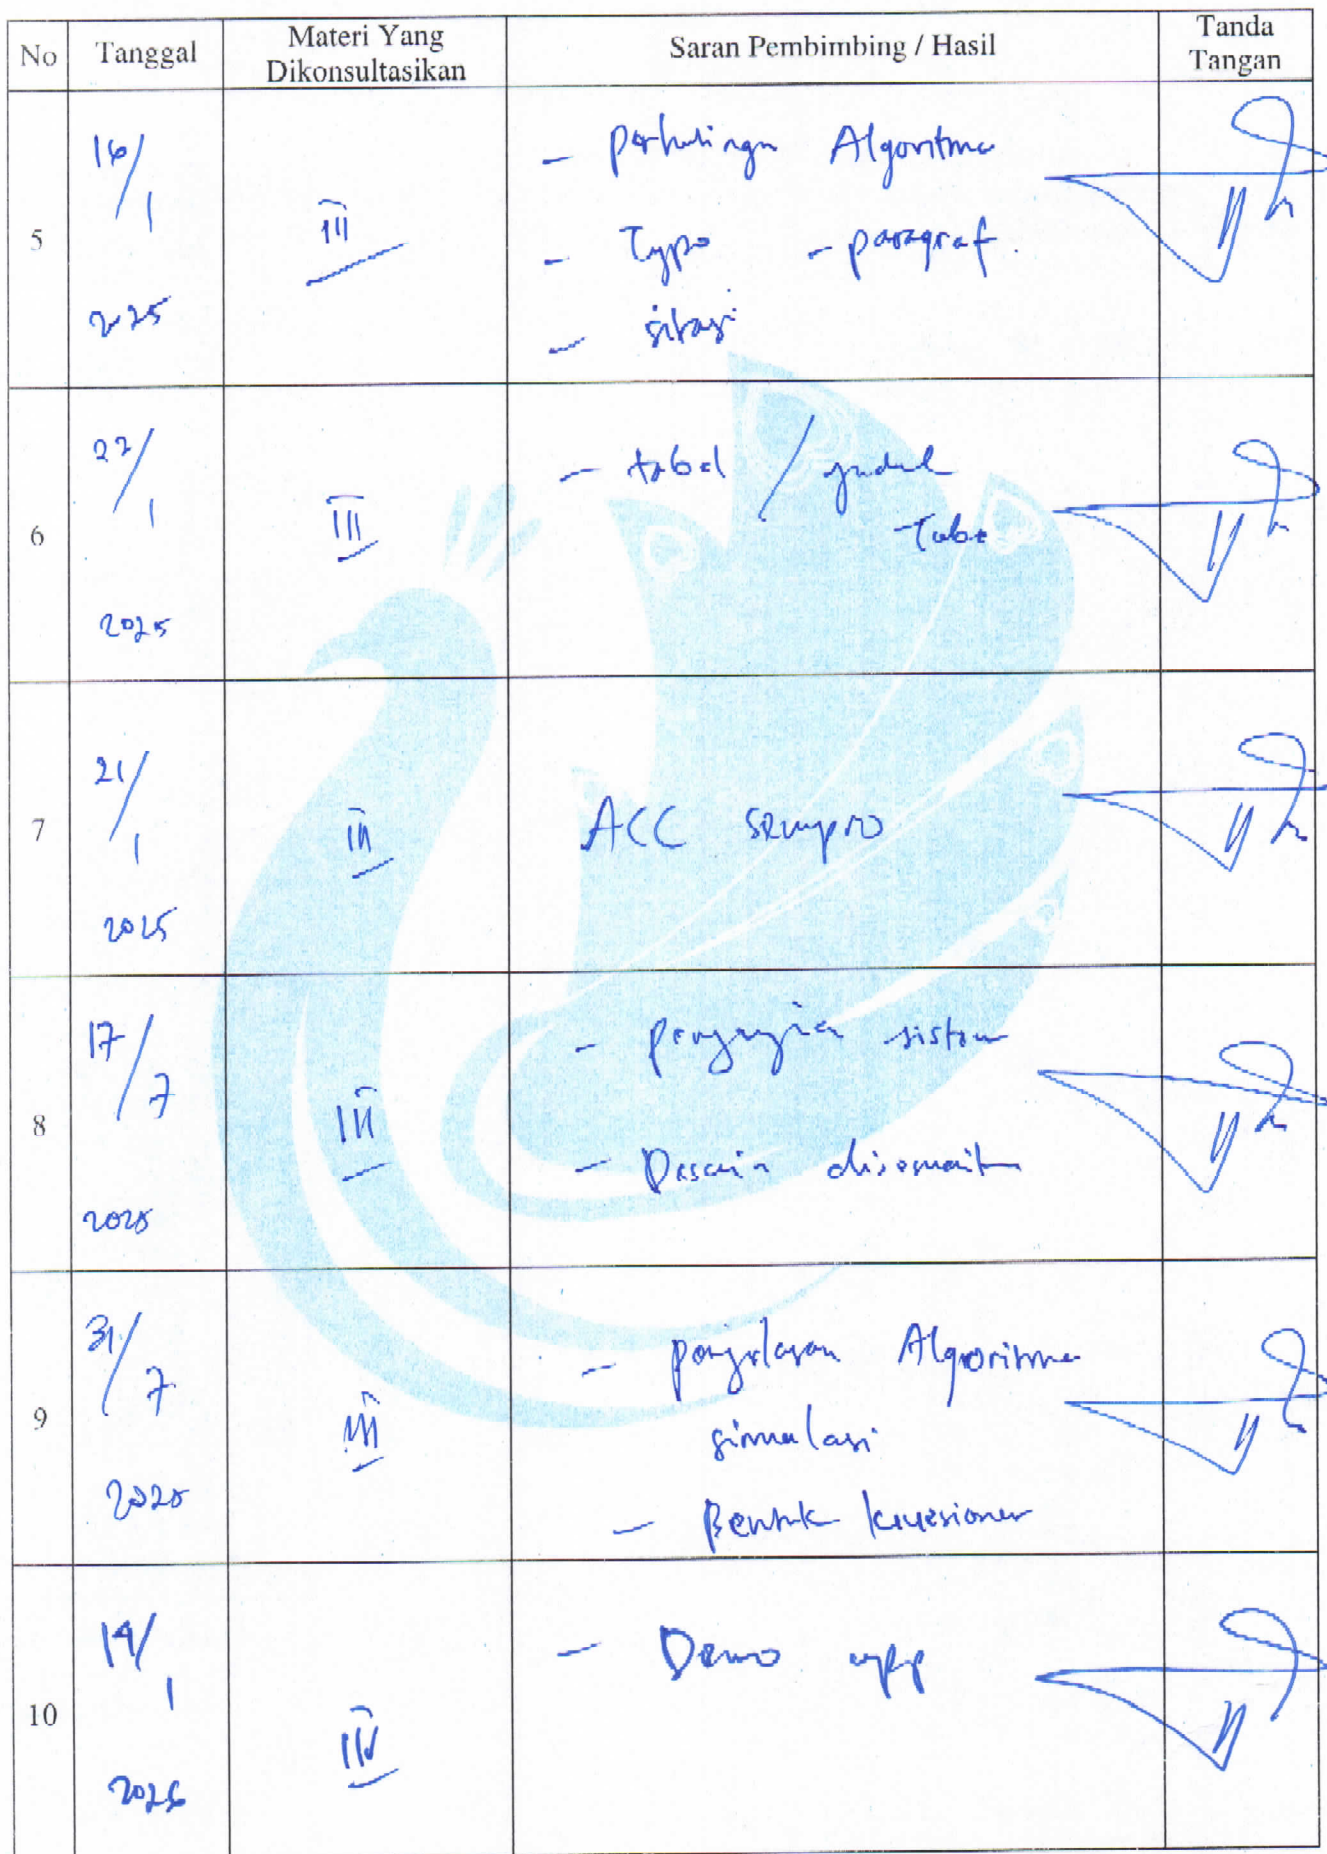 No Tanggal Materi Yang Dikonsultasikan Saran Pembimbing / Hasil Tanda Tangan
5 16/1 2025 III
- perhitungan Algoritma
- Typo - paragraf
- sitasi
6 22/1 2025 III
- tabel / judul
Tabel
7 21/1 2025 III ACC sempro
8 17/7 2025 III
- pengujian sistem
- Desain
9 31/7 2025 III
- penjelasan Algoritma
simulasi
- Bentuk kuesioner
10 14/1 2026 IV
- Demo app